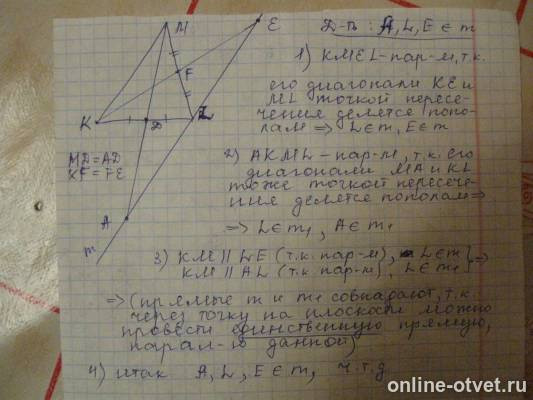 M
E
Д-ть: A, L, E ∈ m
F
K
D
L
MD = AD
KF = FE
A
m
1) KMEL - пар-м, т.к.
его диагонали KE и
ML точкой пересе-
чения делятся попо-
лам ⇒ L ∈ m, E ∈ m
2) AKML - пар-м, т.к. его
диагонали MA и KL
тоже точкой пересече-
ния делятся пополам ⇒
⇒ L ∈ m₁, A ∈ m₁
3) KM || LE (т.к. пар-м), L ∈ m
KM || AL (т.к. пар-м), L ∈ m₁] ⇒
⇒ (прямые m и m₁ совпадают, т.к.
через точку на плоскости можно
провести единственную прямую,
парал-ю данной)
4) итак A, L, E ∈ m, ч.т.д
online-otvet.ru